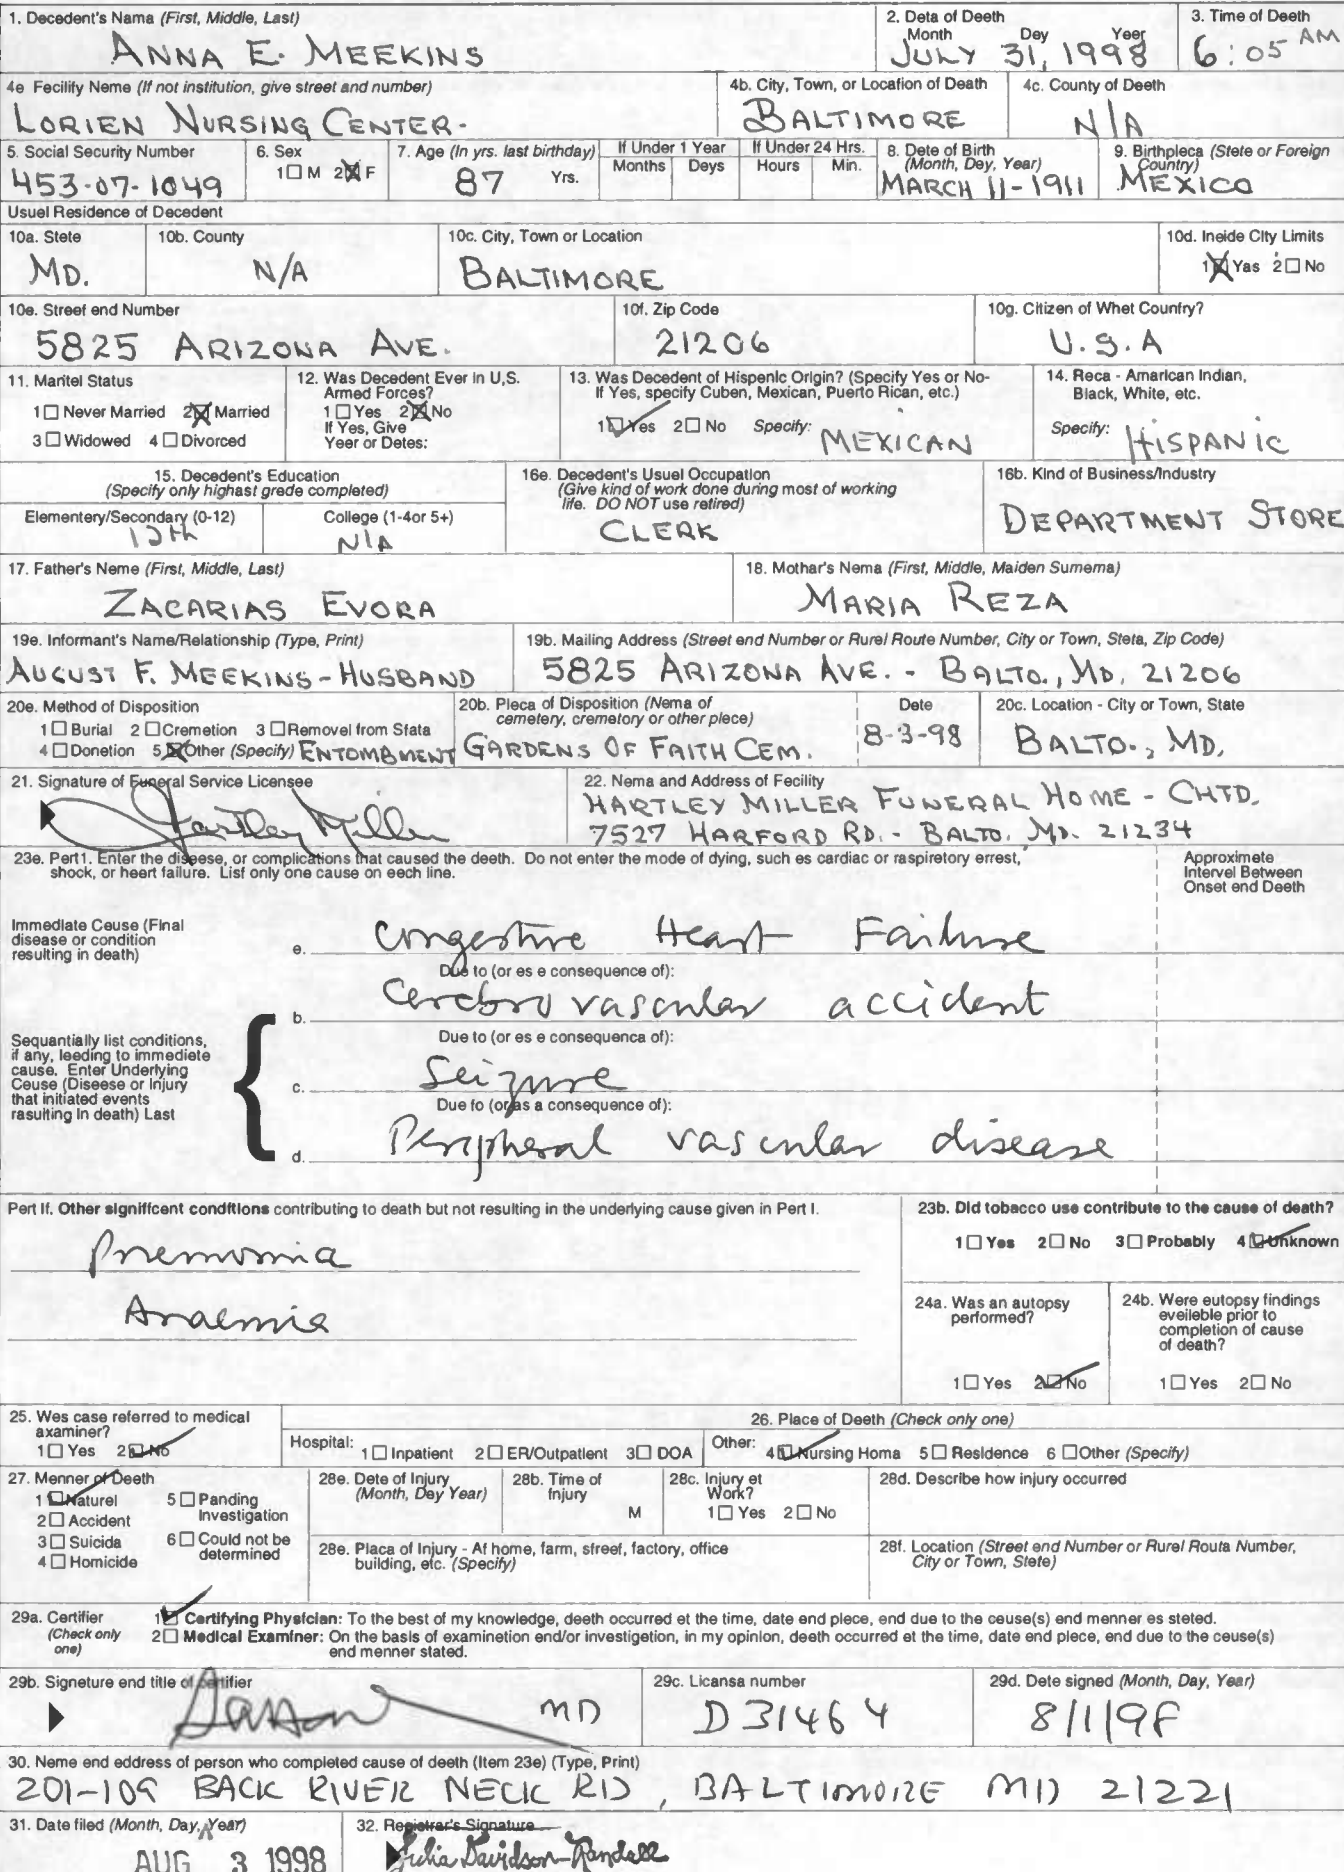 1. Decedent's Name (First, Middle, Last)
ANNA E. MEEKINS
2. Deta of Deeth
Month Dey Yeer
JULY 31, 1998
3. Time of Deeth
6:05 AM
4e Fecility Name (If not institution, give street and number)
LORIEN NURSING CENTER-
4b. City, Town, or Location of Death
BALTIMORE
4c. County of Death
N/A
5. Social Security Number
453-07-1049
6. Sex
1 M 2 F
7. Age (In yrs. last birthday)
87 Yrs.
If Under 1 Year
Months Deys
If Under 24 Hrs.
Hours Min.
8. Dete of Birth
(Month, Dey, Year)
MARCH 11-1911
9. Birthpleca (Stete or Foreign
Country)
MEXICO
Usuel Residence of Decedent
10a. Stete
MD.
10b. County
N/A
10c. City, Town or Location
BALTIMORE
10d. Ineide City Limits
1 Yas 2 No
10e. Streef end Number
5825 ARIZONA AVE.
10f. Zip Code
21206
10g. Citizen of Whet Country?
U.S.A
11. Maritel Status
1 Never Married 2 Married
3 Widowed 4 Divorced
12. Was Decedent Ever in U,S.
Armed Forces?
1 Yes 2 No
If Yes, Give
Yeer or Detes:
13. Was Decedent of Hispenic Origin? (Specify Yes or No-
If Yes, specify Cuben, Mexican, Puerto Rican, etc.)
1 Yes 2 No Specify: MEXICAN
14. Reca - Amarican Indian,
Black, White, etc.
Specify: HISPANIC
15. Decedent's Education
(Specify only highast grede completed)
Elementery/Secondary (0-12)
12th
College (1-4or 5+)
N/A
16e. Decedent's Usuel Occupation
(Give kind of work done during most of working
life. DO NOT use retired)
CLERK
16b. Kind of Business/Industry
DEPARTMENT STORE
17. Father's Neme (First, Middle, Last)
ZACARIAS EVORA
18. Mothar's Nema (First, Middle, Maiden Sumema)
MARIA REZA
19e. Informant's Name/Relationship (Type, Print)
AUGUST F. MEEKINS-HUSBAND
19b. Mailing Address (Street end Number or Rurel Route Number, City or Town, Steta, Zip Code)
5825 ARIZONA AVE. - BALTO., MD. 21206
20e. Method of Disposition
1 Burial 2 Cremetion 3 Removel from Sfata
4 Donetion 5 Other (Specify) ENTOMBMENT
20b. Pleca of Disposition (Nema of
cemetery, cremetory or other plece)
GARDENS OF FAITH CEM.
Date
8-3-98
20c. Location - City or Town, State
BALTO., MD.
21. Signature of Funeral Service Licensee
Hartley Miller
22. Nema and Address of Fecility
HARTLEY MILLER FUNERAL HOME - CHTD.
7527 HARFORD RD. - BALTO. MD. 21234
23e. Pert1. Enter the diseese, or complications that caused the deeth. Do not enter the mode of dying, such es cardiac or raspiretory errest,
shock, or heert failure. Lisf only one cause on eech line.
Approximete
Intervel Between
Onset end Deeth
Immediate Ceuse (Final
disease or condition
resulting in death)
e. Congestive Heart Failure
Due to (or es e consequence of):
b. Cerebrovascular accident
Due to (or es e consequenca of):
Sequantially list conditions,
if any, leeding to immediete
cause. Enter Underlying
Ceuse (Diseese or Injury
that initiated events
rasulting In death) Last
c. Seizure
Due fo (or as a consequence of):
d. Peripheral vascular disease
Pert If. Other significent condftions contributing to death but not resulting in the underlying cause given in Pert I.
Pnemonia
Anaemia
23b. Did tobacco use contribute to the cause of death?
1 Yes 2 No 3 Probably 4 Unknown
24a. Was an autopsy
performed?
1 Yes 2 No
24b. Were eutopsy findings
eveileble prior to
completion of cause
of death?
1 Yes 2 No
25. Wes case referred to medical
axaminer?
1 Yes 2 No
26. Place of Deeth (Check only one)
Hospital: 1 Inpatient 2 ER/Outpatient 3 DOA Other: 4 Nursing Homa 5 Residence 6 Other (Specify)
27. Menner of Death
1 Naturel
2 Accident
3 Suicida
4 Homicide
5 Panding
Investigation
6 Could not be
determined
28e. Date of Injury
(Month, Dey Year)
28b. Time of
Injury
M
28c. Injury et
Work?
1 Yes 2 No
28d. Describe how injury occurred
28e. Placa of Injury - Af home, farm, sfreef, factory, office
building, etc. (Specify)
28f. Location (Street end Number or Rurel Routa Number,
City or Town, Stete)
29a. Certifier
(Check only
one)
1 Certifying Physfcian: To the best of my knowledge, deeth occurred et the time, date end plece, end due to the ceuse(s) end menner es steted.
2 Medical Examfner: On the basis of examinetion end/or investigetion, in my opinlon, deeth occurred et the time, date end plece, end due to the ceuse(s)
end menner stated.
29b. Signeture end title of certifier
MD
29c. Licansa number
D31464
29d. Dete signed (Month, Day, Year)
8/1/98
30. Neme end eddress of person who completed cause of deeth (Item 23e) (Type, Print)
201-109 BACK RIVER NECK RD, BALTIMORE MD 21221
31. Date filed (Month, Day, Year)
AUG 3 1998
32. Registrar's Signature
Julia Davidson-Randall